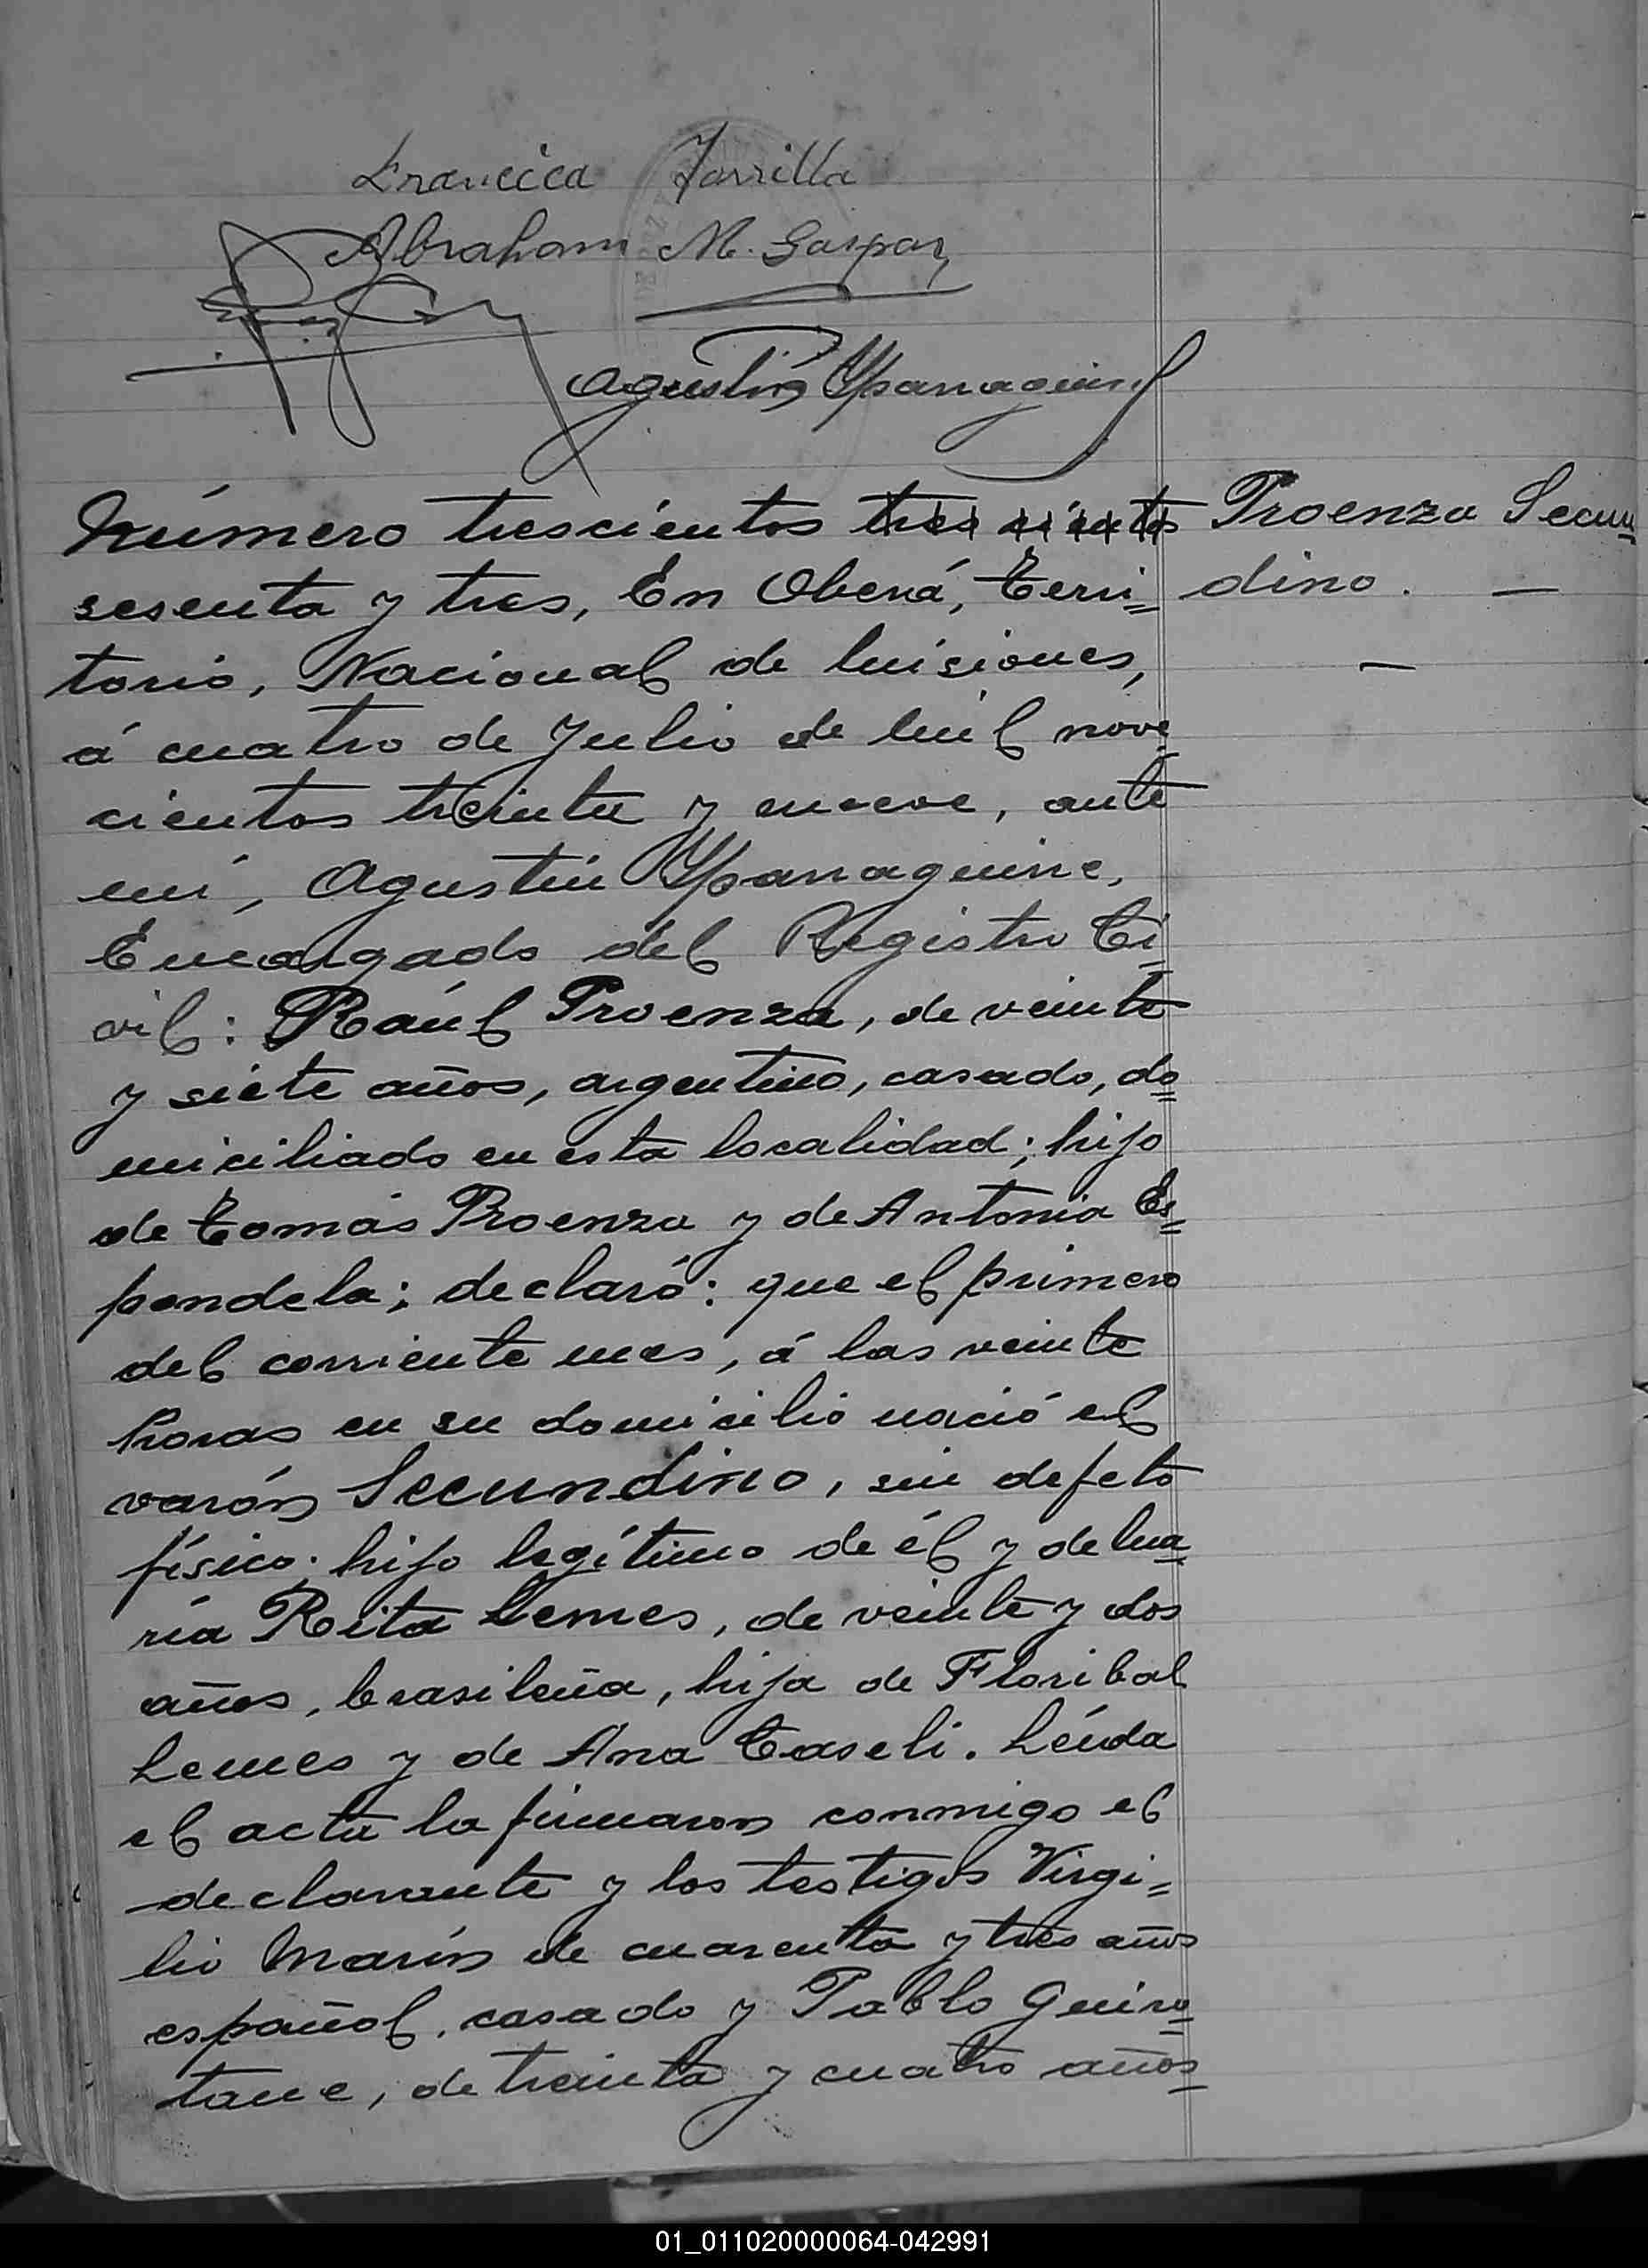 Francisca Zorrilla
Abraham M. Gaspar
Agustín Yparraguirre
Número trescientos tres cientos
sesenta y tres, En Oberá, Terri=
torio, Nacional de Misiones,
á cuatro de Julio de mil nove
cientos treinta y nueve, ante
mí, Agustín Yparraguirre,
Encargado del Registro Ci
vil: Raúl Proenza, de veinte
y siete años, argentino, casado, do
miciliado en esta localidad; hijo
de Tomás Proenza y de Antonia Es
pendela; declaró: que el primero
del corriente mes, á las veinte
horas en su domicilio nació el
varón Secundino, sin defeto
físico; hijo legítimo de él y de Ma
ría Reita Lemes, de veinte y dos
años, brasileña, hija de Floribal
Lemes y de Ana Caseli. Leída
el acta la firmaron conmigo el
declarante y los testigos Virgi=
lio Marín de cuarenta y tres años
español, casado y Pablo
de treinta y cuatro años
Proenza Secun
dino. —
—
01_011020000064-042991